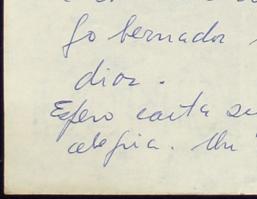 go bernador
dios.
Espero carta su
alegria. Un